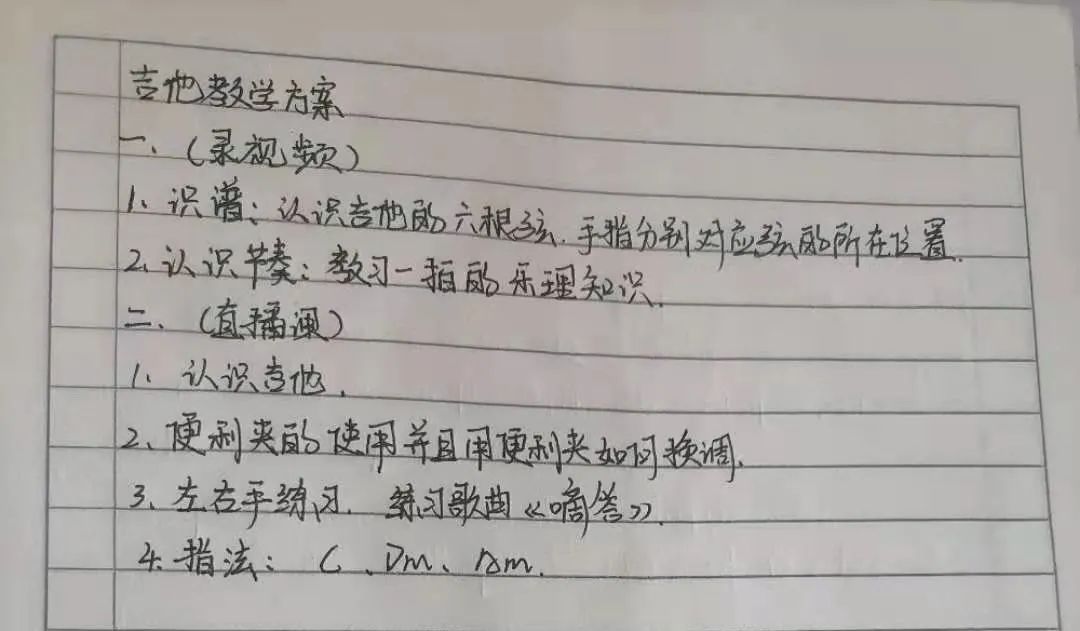 吉他教学方案
一、(录视频)
1、识谱：认识吉他的六根弦.手指分别对应弦的所在位置.
2、认识节奏：教习一拍的乐理知识.
二、(直播课)
1、认识吉他.
2、便利夹的使用并且用便利夹如何换调.
3、左右手练习. 练习歌曲《嘀答》.
4.指法：C、Dm、Am.